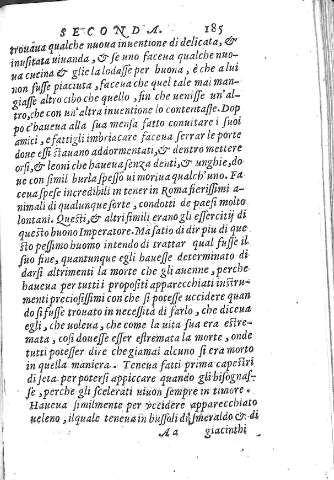 SECONDA. 185
trouaua qualche nuoua inuentione di delicata, &
inusitata uiuanda, & se uno faceua qualche nuo-
ua cucina & glie la lodasse per buona, è che a lui
non fusse piaciuta, faceua che quel tale mai man-
giasse altro cibo che quello, fin che uenisse un'al-
tro, che con un'altra inuentione lo contentasse. Dop
po c'haueua alla sua mensa fatto conuitare i suoi
amici, e fattigli imbriacare faceua serrar le porte
doue essi stauano addormentati, & dentro mettere
orsi, & leoni che haueua senza denti, & unghie, do
ue con simil burla spesso ui moriua qualch'uno. Fa
ceua spese incredibili in tener in Roma fierissimi a-
nimali di qualunque sorte, condotti de paesi molto
lontani. Questi, & altri simili erano gli essercitij di
questo buono Imperatore. Ma satio di dir piu di que
sto pessimo huomo intendo di trattar qual fusse il
suo fine, quantunque egli hauesse determinato di
darsi altrimenti la morte che gli auenne, perche
haueua per tutti i propositi apparecchiati instru-
menti preciosissimi con che si potesse uccidere quan
do si fusse trouato in necessità di farlo, che diceua
egli, che uoleua, che come la uita sua era estre-
mata, così douesse esser estremata la morte, onde
tutti potesser dire che giamai alcuno si era morto
in quella maniera. Teneua fatti prima capestri
di seta per potersi appiccare quando gli bisognas-
se, perche gli scelerati uiuon sempre in timore.
Haueua similmente per vccidere apparecchiato
ueleno, il quale teneua in bussoli di smeraldo & di
Aa giacinthi